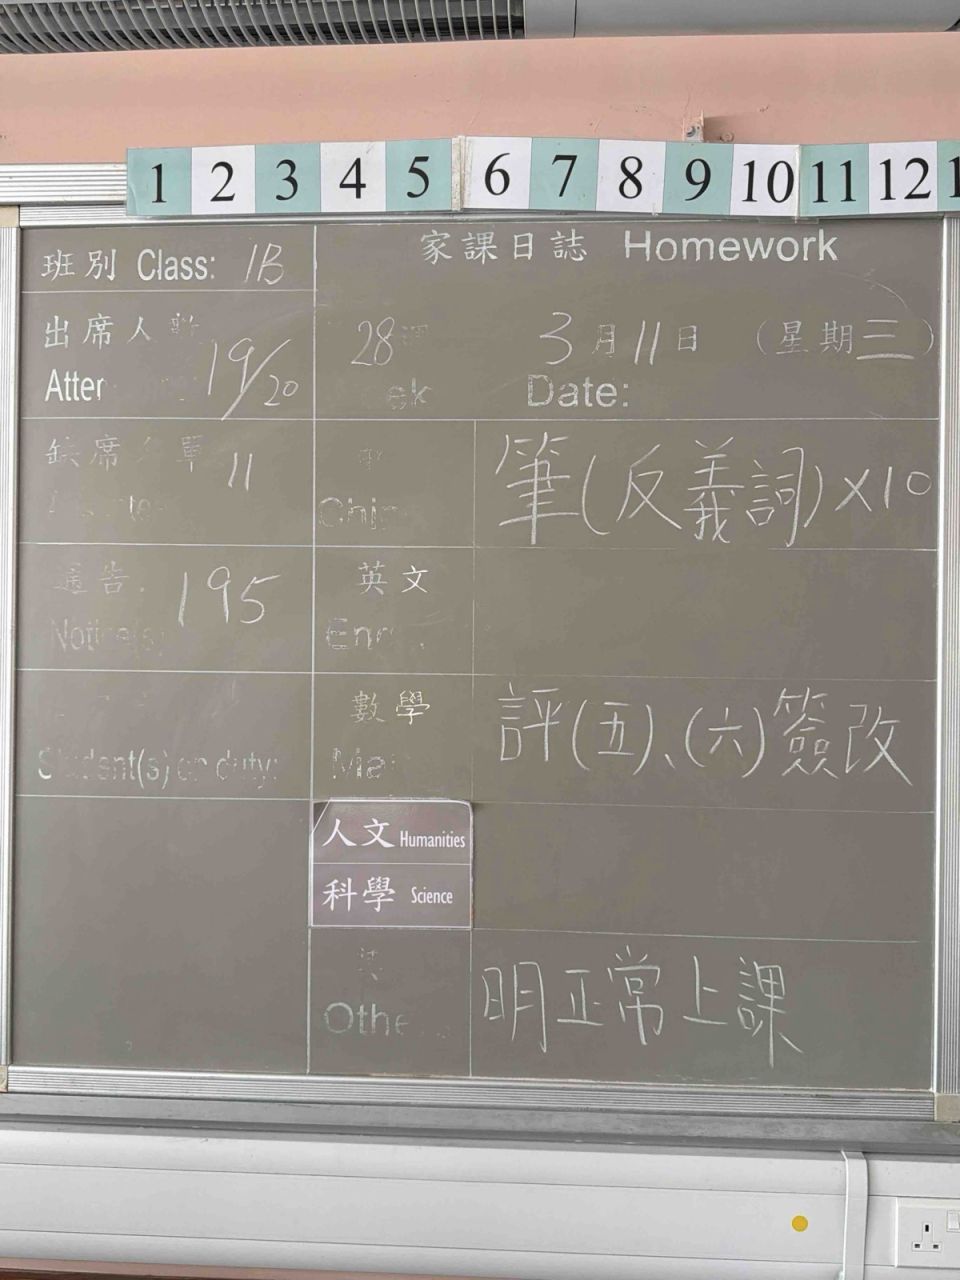 1 2 3 4 5 6 7 8 9 10 11 12 1
班別 Class: 1B
家課日誌 Homework
出席人數 19/20
28週 3月11日 (星期三)
Date:
缺席名單 11
筆(反義詞)×10
通告. 195
Notice(s)
英文
數學 評(五)、(六)簽改
Student(s) on duty:
人文 Humanities
科學 Science
明正常上課